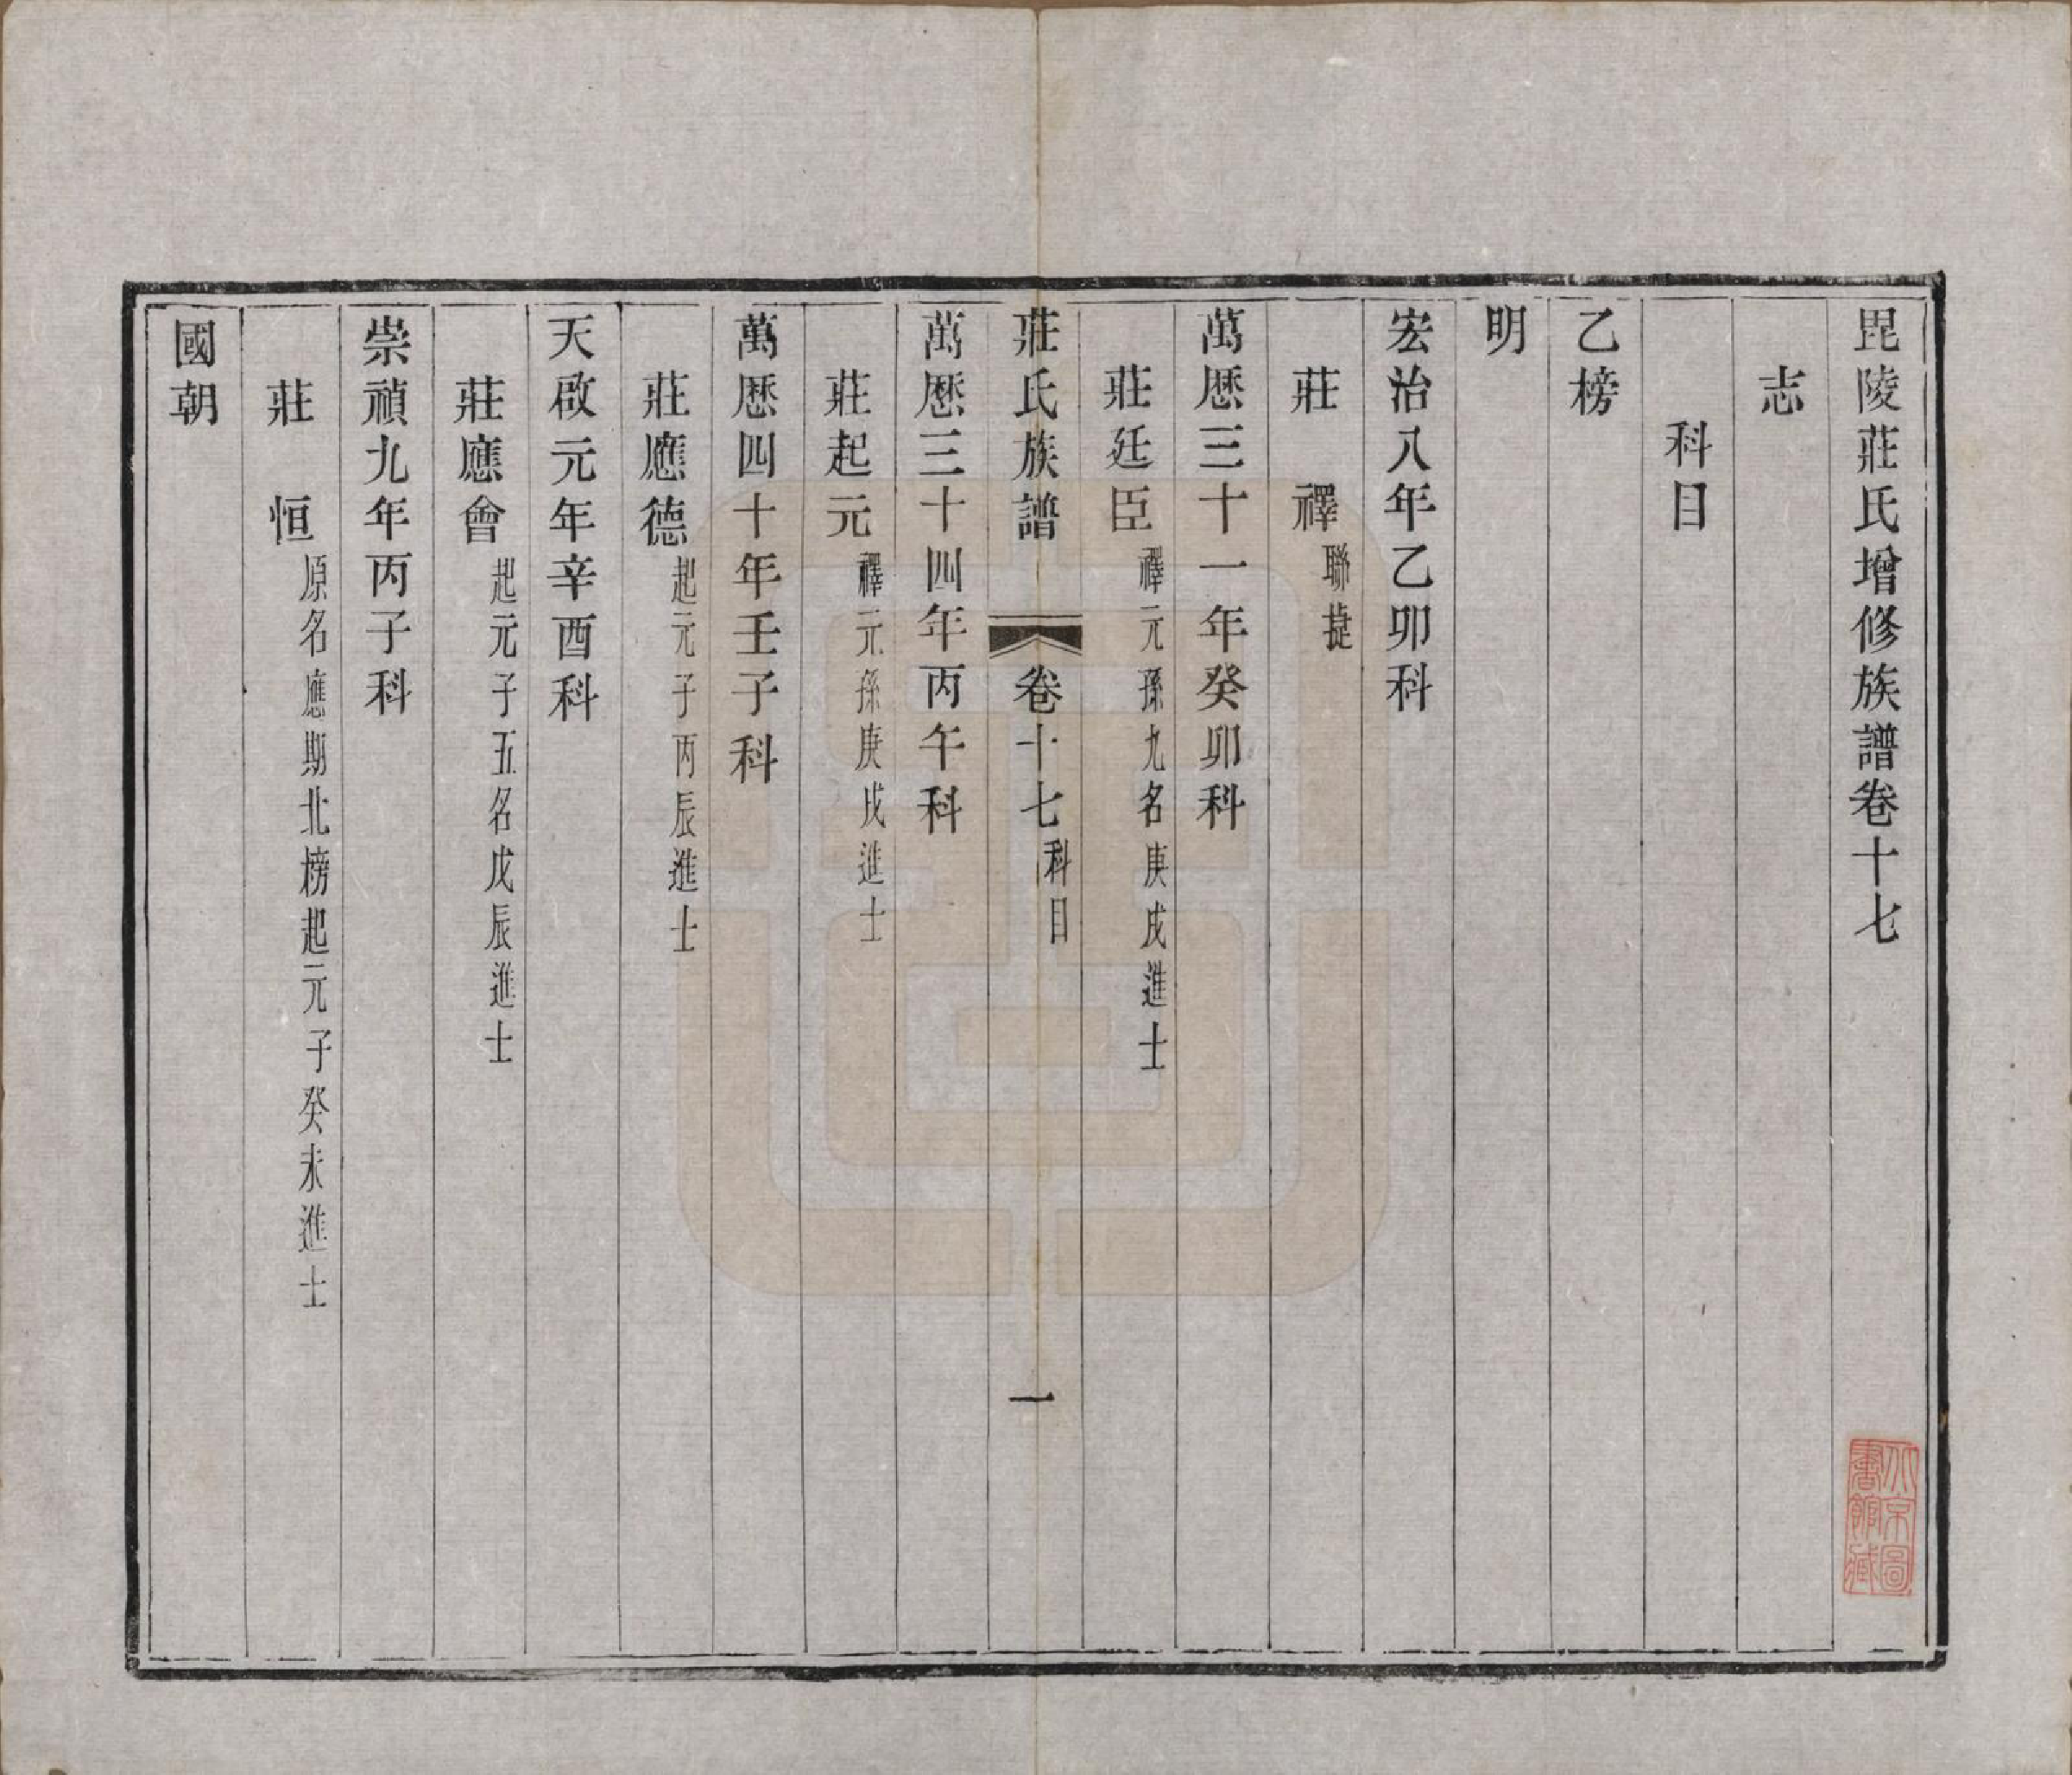 毘陵莊氏增修族譜卷十七
志
科目
乙榜
明
宏治八年乙卯科
莊　禪聯捷
萬厯三十一年癸卯科
莊廷臣禪元孫九名庚戌進士
莊氏族譜　卷十七科目　一
萬厯三十四年丙午科
莊起元禪元孫庚戌進士
萬厯四十年壬子科
莊應德起元子丙辰進士
天啟元年辛酉科
莊應會起元子五名戊辰進士
崇禎九年丙子科
莊　恒原名應期北榜起元子癸未進士
國朝
北京圖書館藏